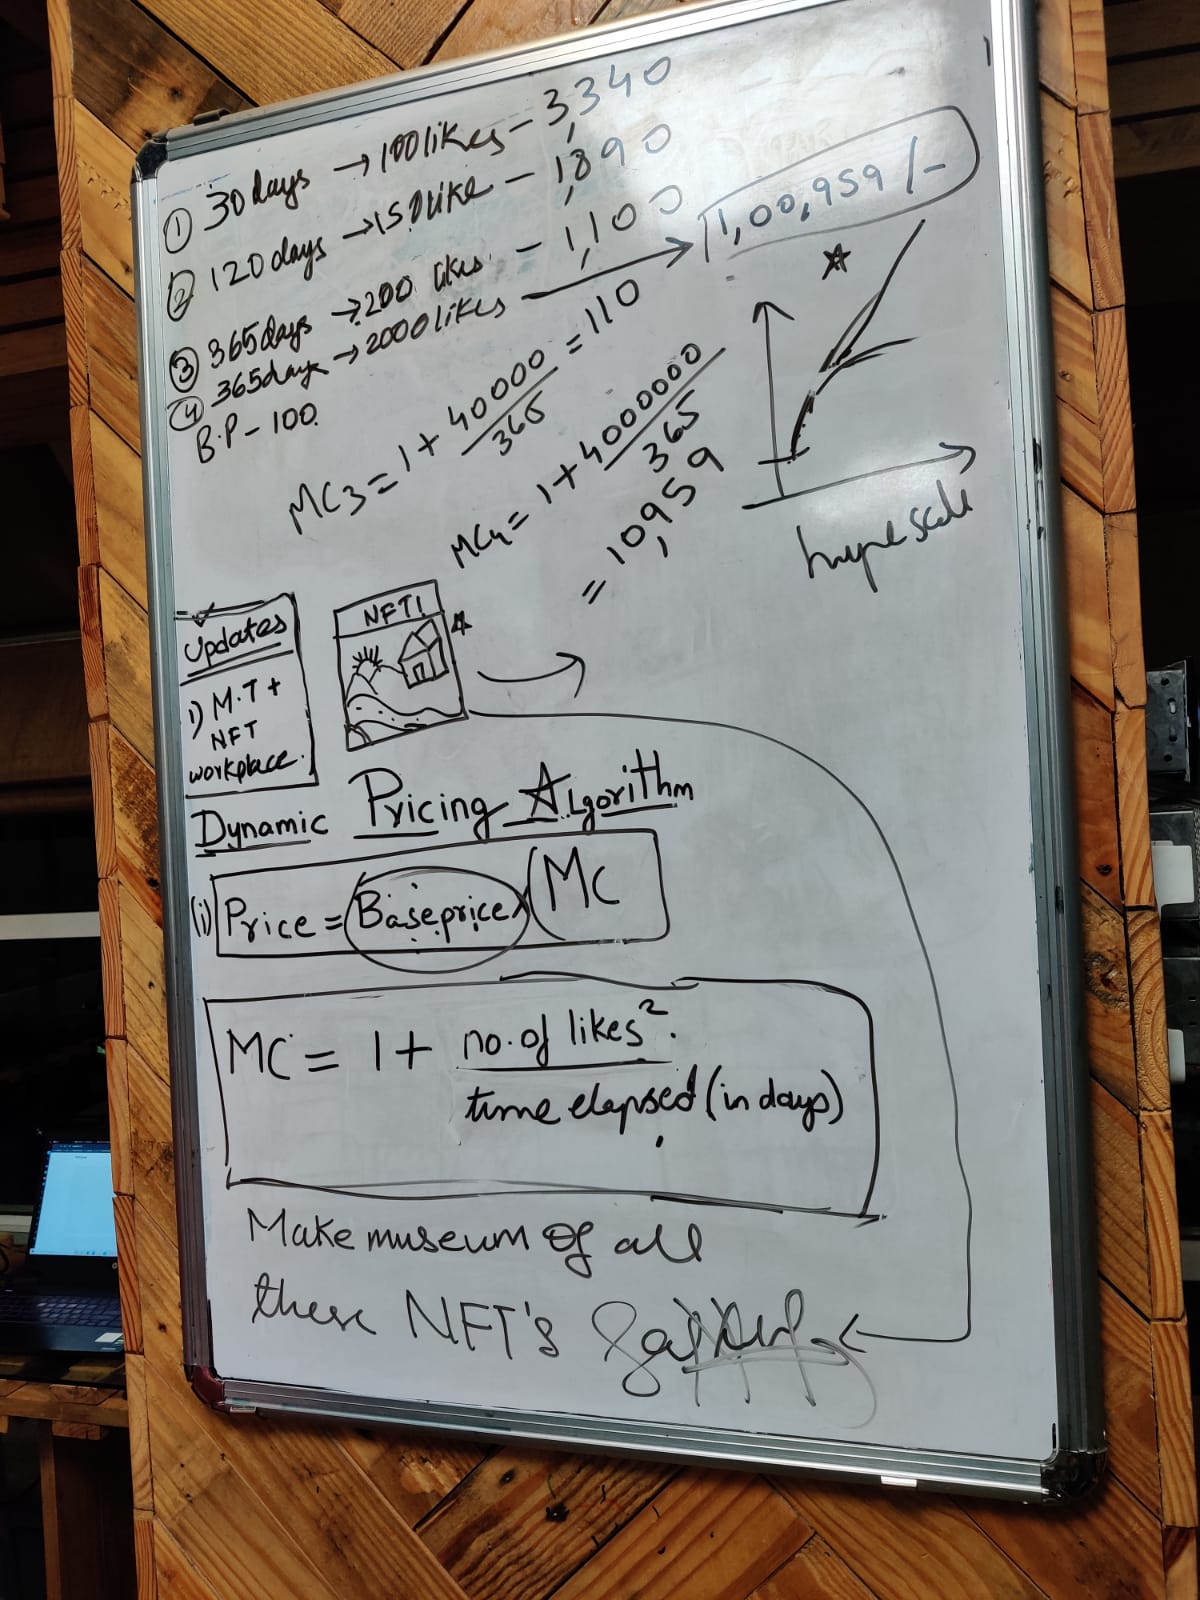 ① 30 days → 100 likes – 3,340
② 120 days → 150 like – 1,890
③ 365 days → 200 likes – 1,100
④ 365 days → 2000 likes → 1,00,959 /-
B.P – 100
MC3 = 1 + 40000/365 = 110
MC4 = 1 + 4000000/365
= 10,959
hype scale
Updates
1) M.T +
NFT
workplace.
NFT!
Dynamic Pricing Algorithm
(i) Price = Baseprice × (MC
MC = 1 + no. of likes² / time elapsed (in days)
Make museum of all
these NFT's